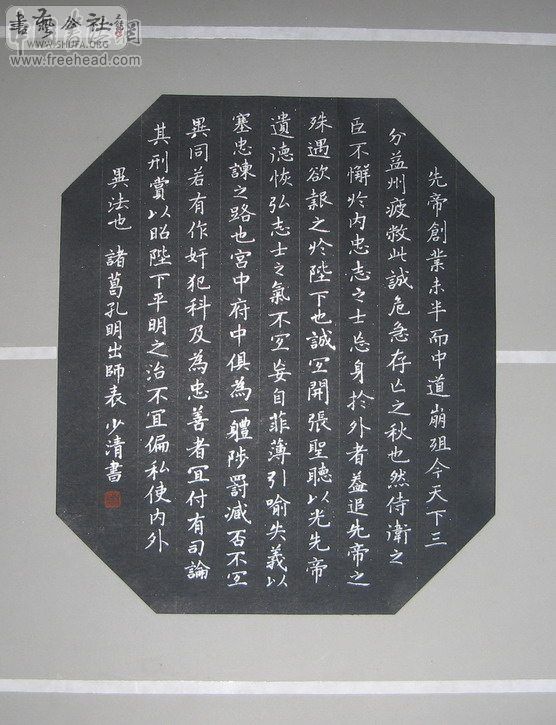 書藝公社
WWW.SHUFA.ORG
www.freehead.com
先帝創業未半而中道崩殂今天下三
分益州疲敝此誠危急存亡之秋也然侍衛之
臣不懈於內忠志之士忘身於外者蓋追先帝之
殊遇欲報之於陛下也誠宜開張聖聽以光先帝
遺德恢弘志士之氣不宜妄自菲薄引喻失義以
塞忠諫之路也宮中府中俱為一體陟罰臧否不宜
異同若有作奸犯科及為忠善者宜付有司論
其刑賞以昭陛下平明之治不宜偏私使內外
異法也 諸葛孔明出師表 少清書